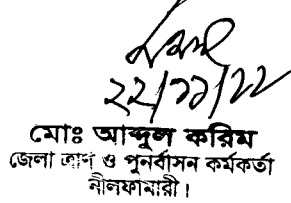 ২২/১১/২২
মোঃ আব্দুল করিম
জেলা ত্রাণ ও পুনর্বাসন কর্মকর্তা
নীলফামারী।